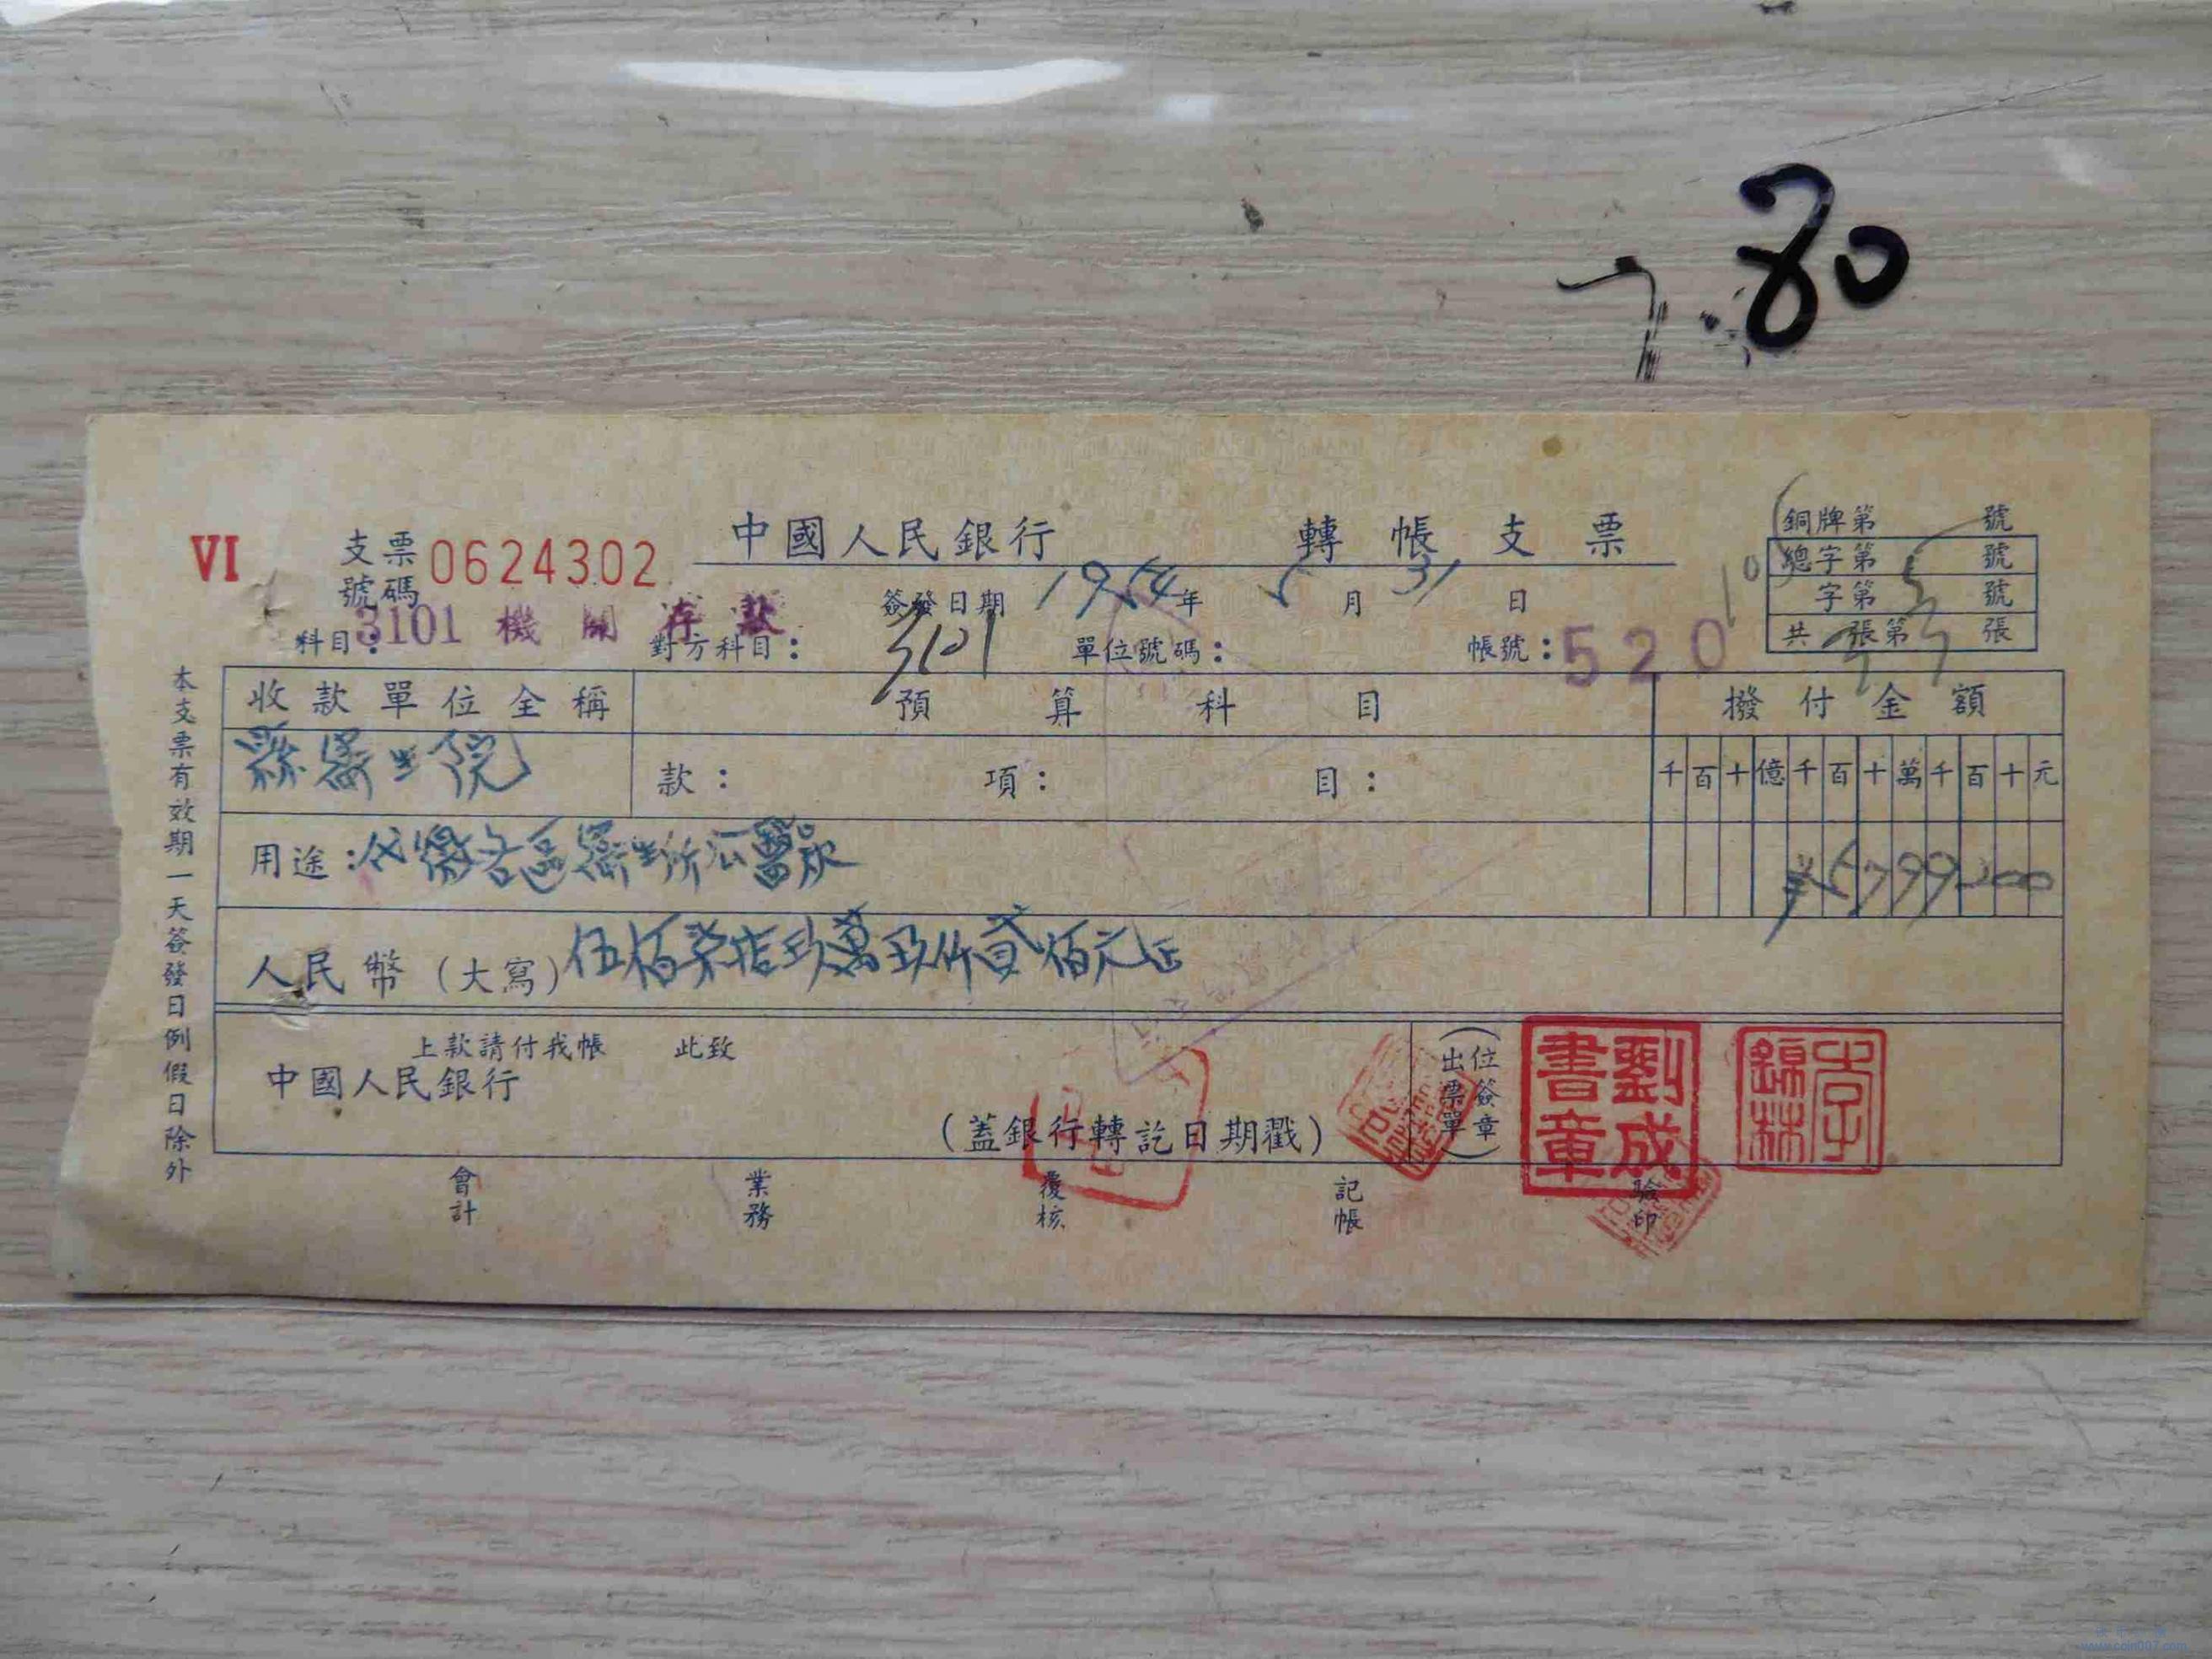 7.80
中國人民銀行 轉帳支票
VI 支票號碼 0624302
簽發日期 1954年 5月 31日
銅牌第 號
總字第 號
字第 號
共 張第 張
科目：3101 機關存款 對方科目：3101 單位號碼： 帳號：520
收款單位全稱 預算科目 撥付金額
縣衛生院 款： 項： 目： 千百十億千百十萬千百十元
用途：代繳各區衛生所公醫款 ¥5799200
人民幣（大寫）伍佰柒拾玖萬玖仟貳佰元正
上款請付我帳 此致
中國人民銀行
（蓋銀行轉訖日期戳）
（出票單位簽章）
劉成書章
李錦林
會計 業務 覆核 記帳 驗印
本支票有效期一天簽發日例假日除外
www.coin007.com